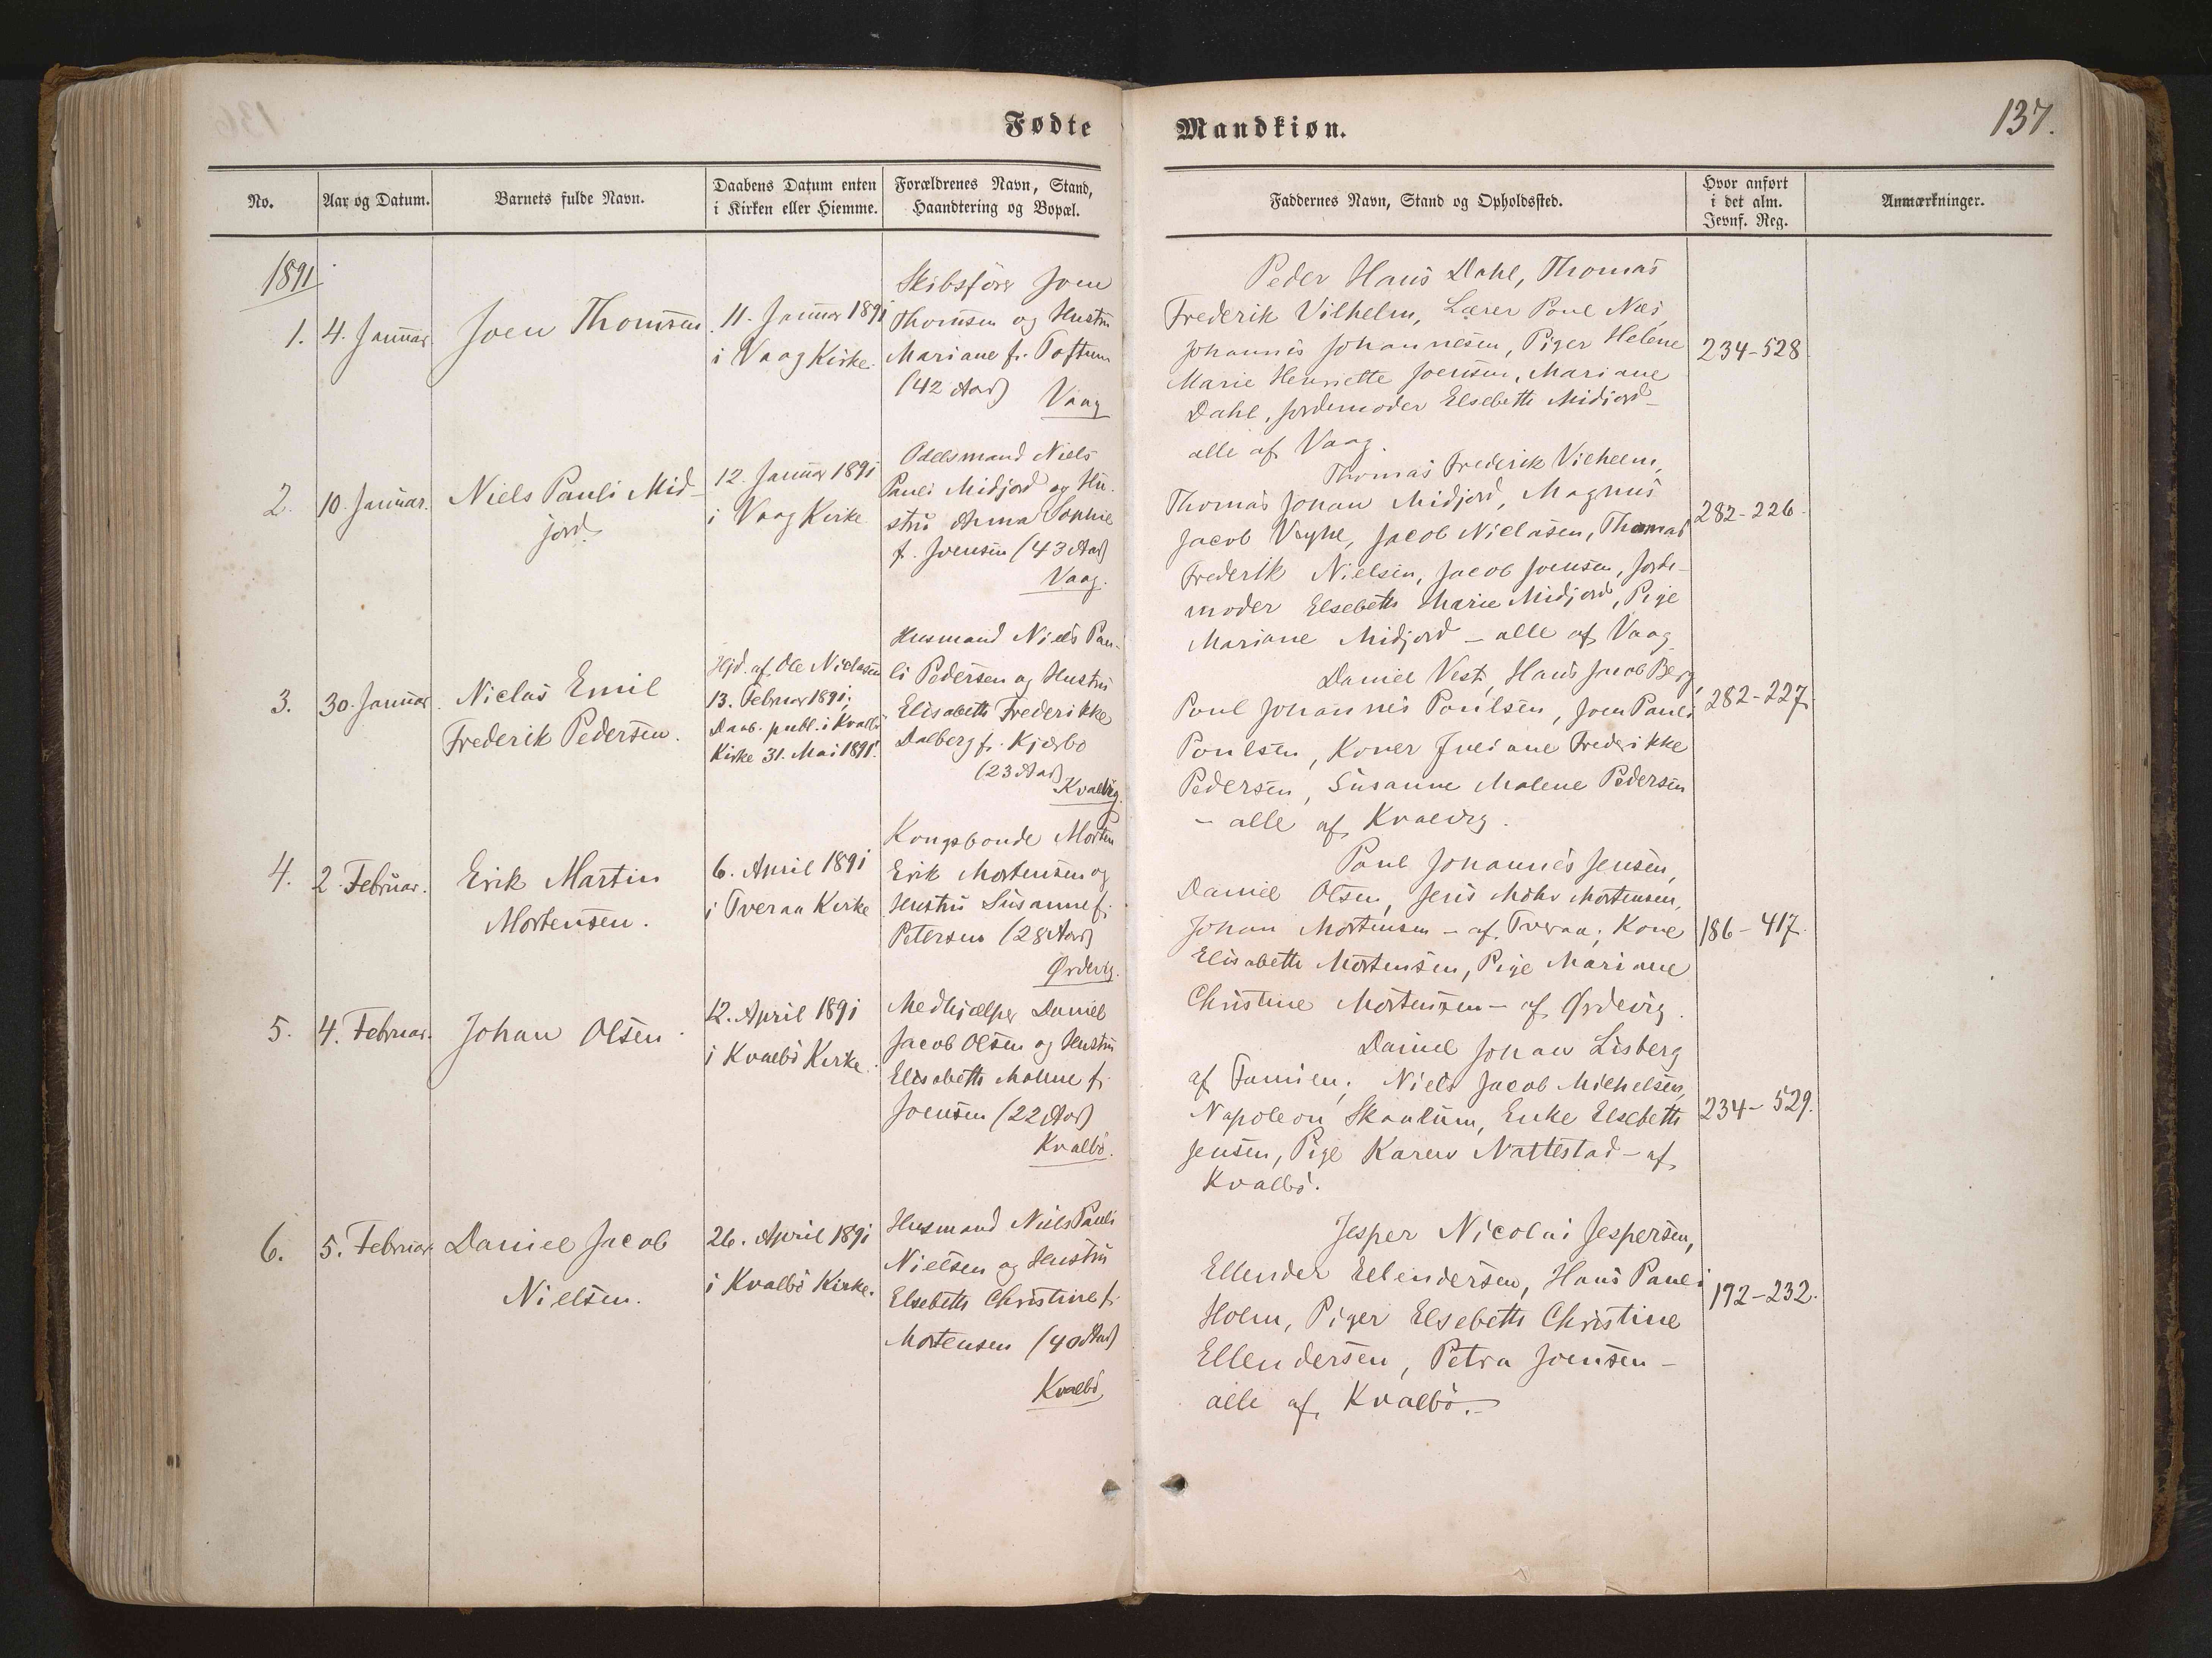 Fødte
Mandkiøn.
137.
No.
Aar og Datum.
Barnets fulde Navn.
Daabens Datum enten
i Kirken eller Hiemme.
Forældrenes Navn, Stand,
Haandtering og Bopæl.
Faddernes Navn, Stand og Opholdssted.
Hvor anført
i det alm.
Jevnf. Reg.
Anmærkninger.
1891
1.
4. Januar
Joen Thomsen
11. Januar 1891
i Vaag Kirke.
Skibsfører Joen
Thomsen og Hustru
Mariane f. Toftum
(42 Aar)
Vaag
Peder Hans Dahl, Thomas
Frederik Vilhelm, Lærer Poul Næs,
Johannes Johannesen, Piger Helene
Marie Henriette Joensen, Mariane
Dahl, Jordemoder Elsebeth Midjord
alle af Vaag.
234-528
2.
10. Januar.
Niels Pauli Mid-
jord.
12. Januar 1891
i Vaag Kirke
Odelsmand Niels
Pauli Midjord og Hu-
stru Anna Sophie
f. Joensen (43 Aar)
Vaag.
Thomas Frederik Vilhelm,
Thomas Johan Midjord, Magnus
Jacob Vaghe, Jacob Niclasen, Thomas
Frederik Nielsen, Jacob Joensen, Jorde-
moder Elsebeth Marie Midjord, Pige
Mariane Midjord - alle af Vaag
282-226.
3.
30. Januar.
Niclas Emil
Frederik Pedersen.
Hjd. af Ole Niclasen
13. Februar 1891;
Daab. publ. i Kvalbø
Kirke 31. Mai 1891.
Husmand Niels Pau-
li Pedersen og Hustru
Elisabeth Frederikke
Dalberg f. Kjærbo
(23 Aar)
Kvalvig.
Daniel Vest, Hans Jacob Berg,
Poul Johannes Poulsen, Joen Pauli
Poulsen, Koner Juliane Frederikke
Pedersen, Susanne Malene Pedersen
- alle af Kvalvig.
282-227.
4.
2. Februar.
Erik Martin
Mortensen.
6. April 1891
i Tveraa Kirke
Kongsbonde Morten
Erik Mortensen og
Hustru Susanne f.
Petersen (28 Aar)
Ørdevig.
Poul Johannes Jensen,
Daniel Olsen, Jens Mohr Mortensen,
Johan Mortensen - af Tveraa; Kone
Elisabeth Mortensen, Pige Mariane
Christine Mortensen - af Ørdevig.
186-417.
5.
4. Februar.
Johan Olsen.
12. April 1891
i Kvalbø Kirke.
Medhjælper Daniel
Jacob Olsen og Hustru
Elisabeth Malene f.
Joensen (22 Aar)
Kvalbø.
Daniel Johan Lisberg
af Famien, Niels Jacob Michelsen,
Napoleon Skaalum, Enke Elsebeth
Jensen, Pige Karen Nattestad - af
Kvalbø.
234-529.
6.
5. Februar.
Daniel Jacob
Nielsen.
26. April 1891
i Kvalbø Kirke.
Husmand Niels Pauli
Nielsen og Hustru
Elsebeth Christine f.
Mortensen (40 Aar)
Kvalbø
Jesper Nicolai Jespersen,
Ellender Ellendersen, Hans Pauli
Holm, Piger Elsebeth Christine
Ellendersen, Petra Joensen -
alle af Kvalbø.
192-232.